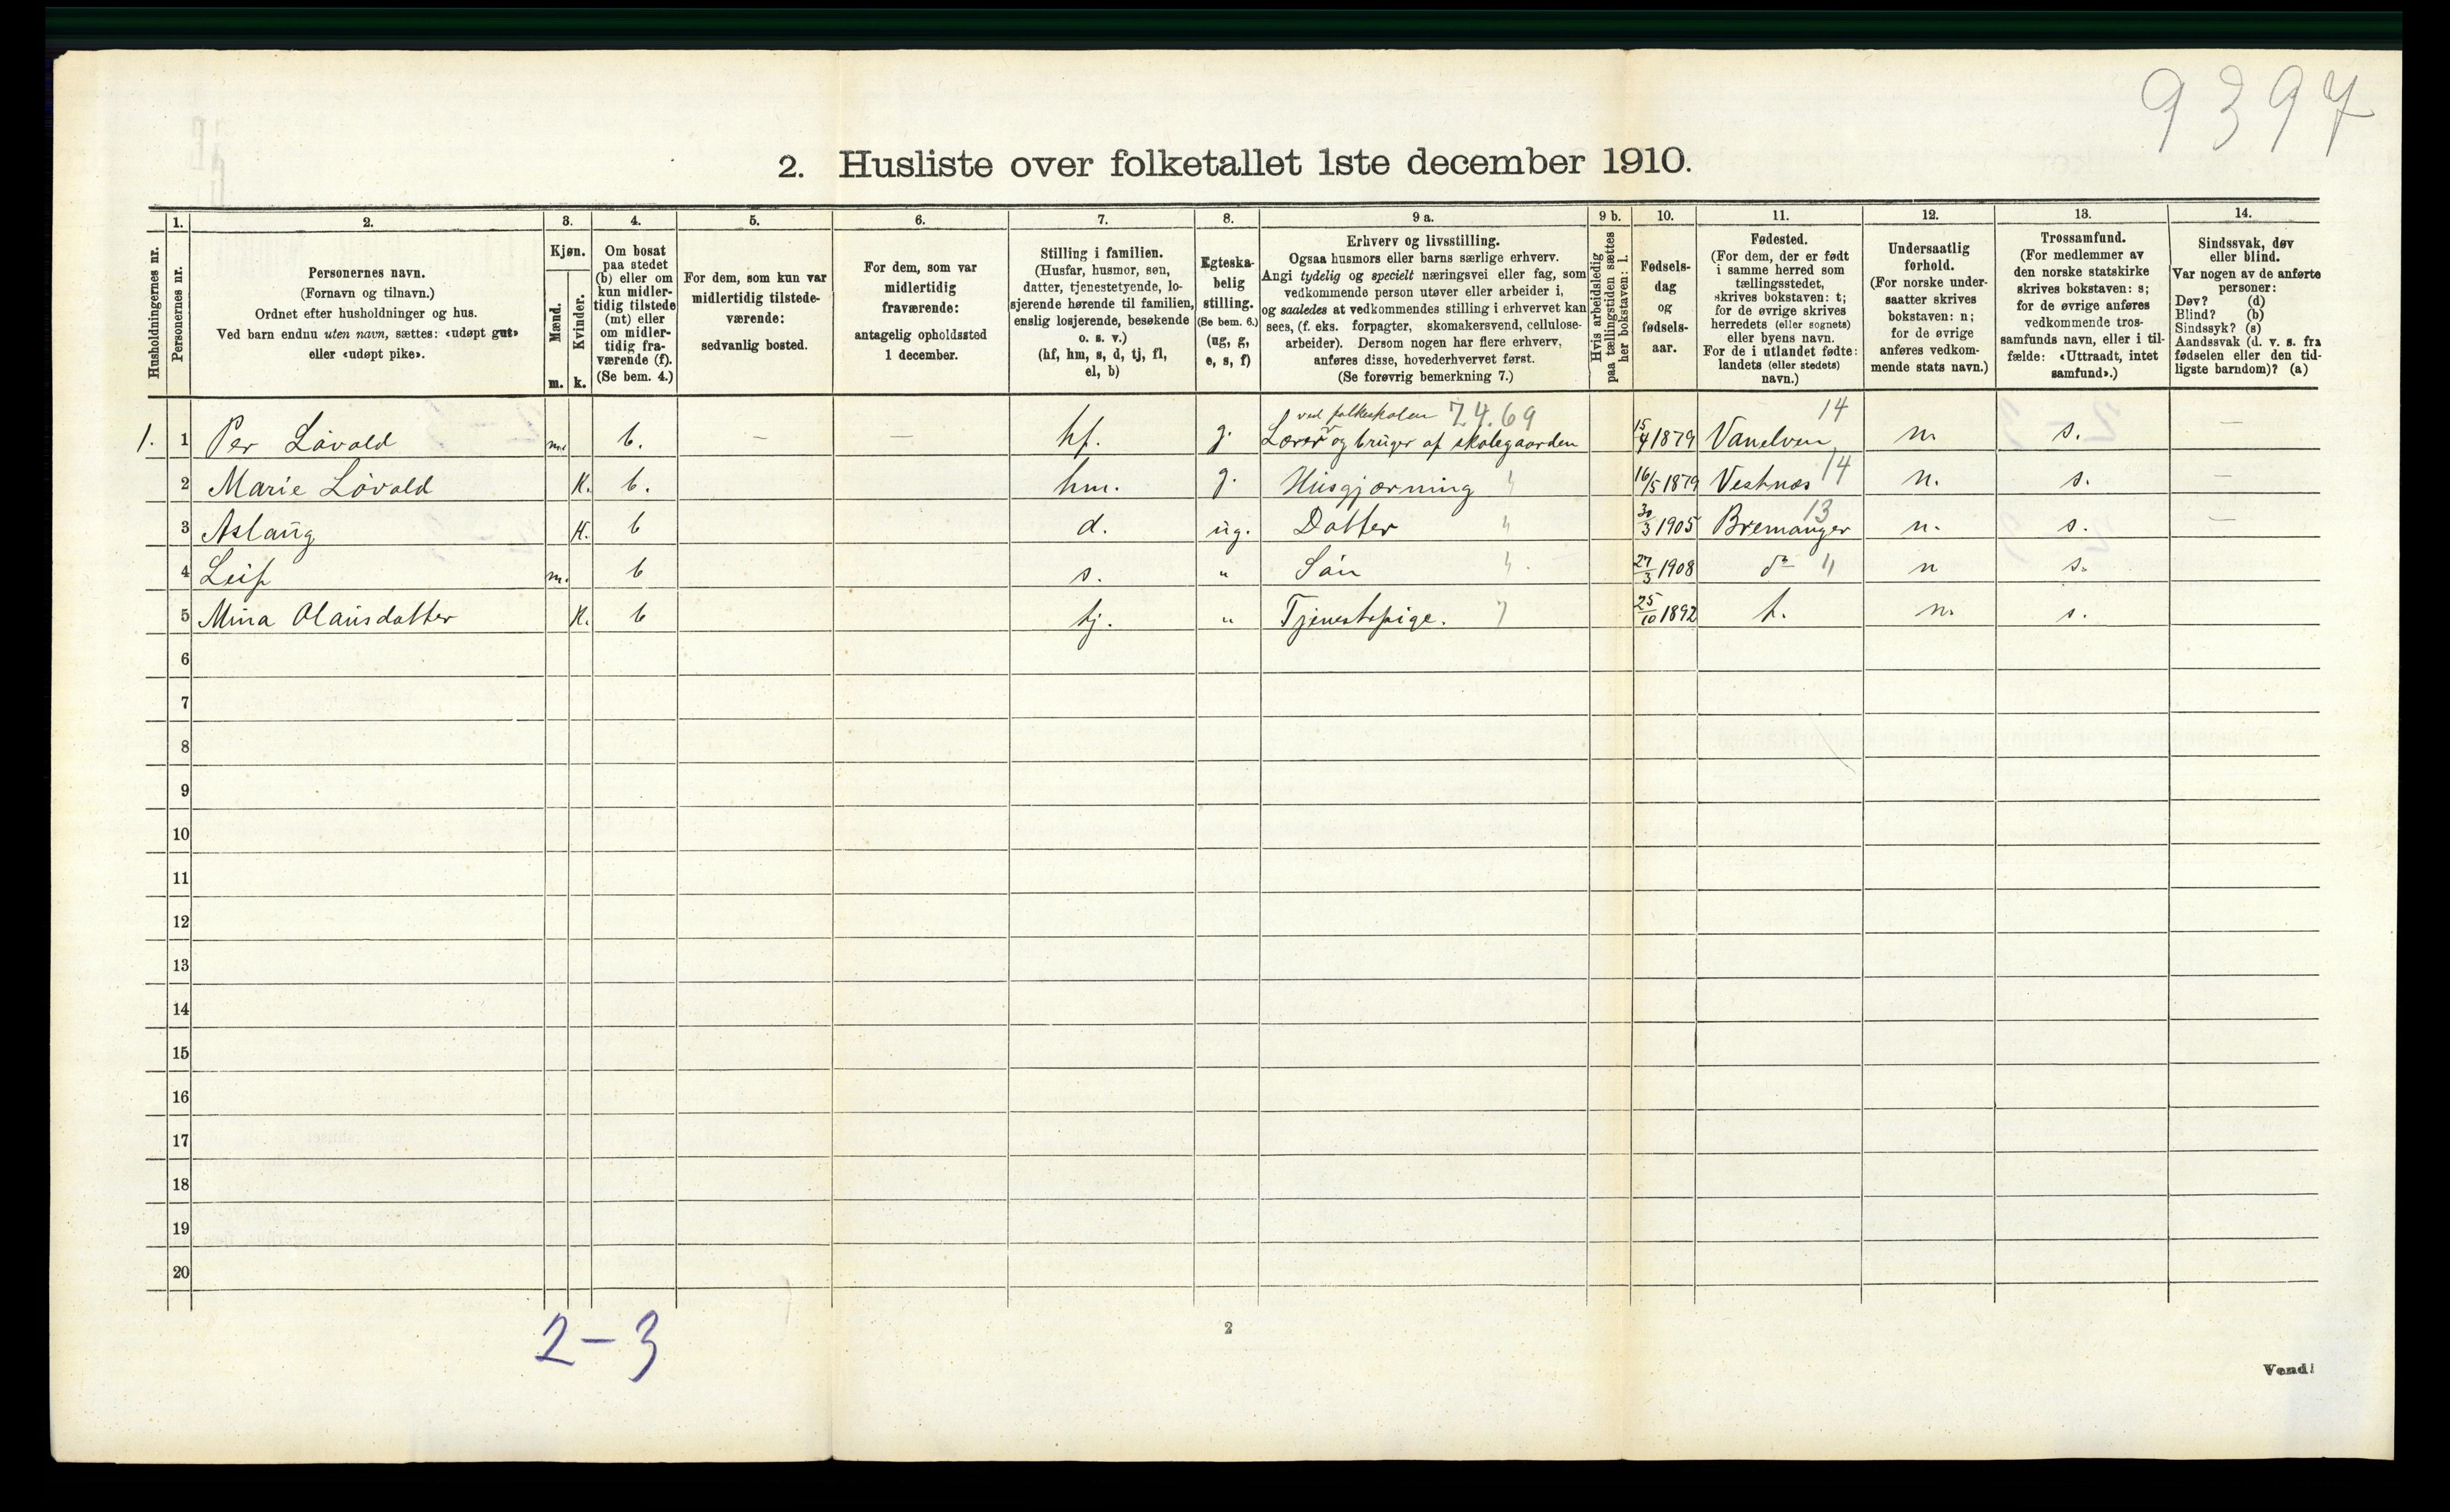 9397
2. Husliste over folketallet 1ste december 1910.
Husholdningernes nr.
1. Personernes nr.
2.
Personernes navn.
(Fornavn og tilnavn.)
Ordnet efter husholdninger og hus.
Ved barn endnu uten navn, sættes: «udøpt gut»
eller «udøpt pike».
3.
Kjøn.
Mænd. Kvinder.
m. k.
4.
Om bosat
paa stedet
(b) eller om
kun midler-
tidig tilstede
(mt) eller
om midler-
tidig fra-
værende (f).
(Se bem. 4.)
5.
For dem, som kun var
midlertidig tilstede-
værende:
sedvanlig bosted.
6.
For dem, som var
midlertidig
fraværende:
antagelig opholdssted
1 december.
7.
Stilling i familien.
(Husfar, husmor, søn,
datter, tjenestetyende, lo-
sjerende hørende til familien,
enslig losjerende, besøkende
o. s. v.)
(hf, hm, s, d, tj, fl,
el, b)
8.
Egteska-
belig
stilling.
(Se bem. 6.)
(ug, g,
e, s, f)
9 a.
Erhverv og livsstilling.
Ogsaa husmors eller barns særlige erhverv.
Angi tydelig og specielt næringsvei eller fag, som
vedkommende person utøver eller arbeider i,
og saaledes at vedkommendes stilling i erhvervet kan
sees, (f. eks. forpagter, skomakersvend, cellulose-
arbeider). Dersom nogen har flere erhverv,
anføres disse, hovederhvervet først.
(Se forøvrig bemerkning 7.)
9 b.
Hvis arbeidsledig
paa tællingstiden sættes
her bokstaven: l.
10.
Fødsels-
dag
og
fødsels-
aar.
11.
Fødested.
(For dem, der er født
i samme herred som
tællingsstedet,
skrives bokstaven: t;
for de øvrige skrives
herredets (eller sognets)
eller byens navn.
For de i utlandet fødte:
landets (eller stedets)
navn.)
12.
Undersaatlig
forhold.
(For norske under-
saatter skrives
bokstaven: n;
for de øvrige
anføres vedkom-
mende stats navn.)
13.
Trossamfund.
(For medlemmer av
den norske statskirke
skrives bokstaven: s;
for de øvrige anføres
vedkommende tros-
samfunds navn, eller i til-
fælde: «Uttraadt, intet
samfund».)
14.
Sindssvak, døv
eller blind.
Var nogen av de anførte
personer:
Døv? (d)
Blind? (b)
Sindssyk? (s)
Aandssvak (d. v. s. fra
fødselen eller den tid-
ligste barndom)? (a)
ved folkeskolen 74.69 14
1. 1 Per Løvold m. b. – – hf. g. Lærer og bruger af skolegaarden 15/4 1879 Vanelven n. s. –
2 Marie Løvold K. b. hm. g. Husgjærning " 16/5 1879 Vestnæs 14 n. s. –
3 Aslaug K. b d. ug. Datter " 30/3 1905 Bremanger 13 n. s. –
4 Leif m. b s. " Søn " 27/3 1908 do " n s.
5 Mina Olausdatter K. b tj. " Tjenestepige. 7 25/10 1892 t. n. s.
6
7
8
9
10
11
12
13
14
15
16
17
18
19
20
2–3
2
Vend!